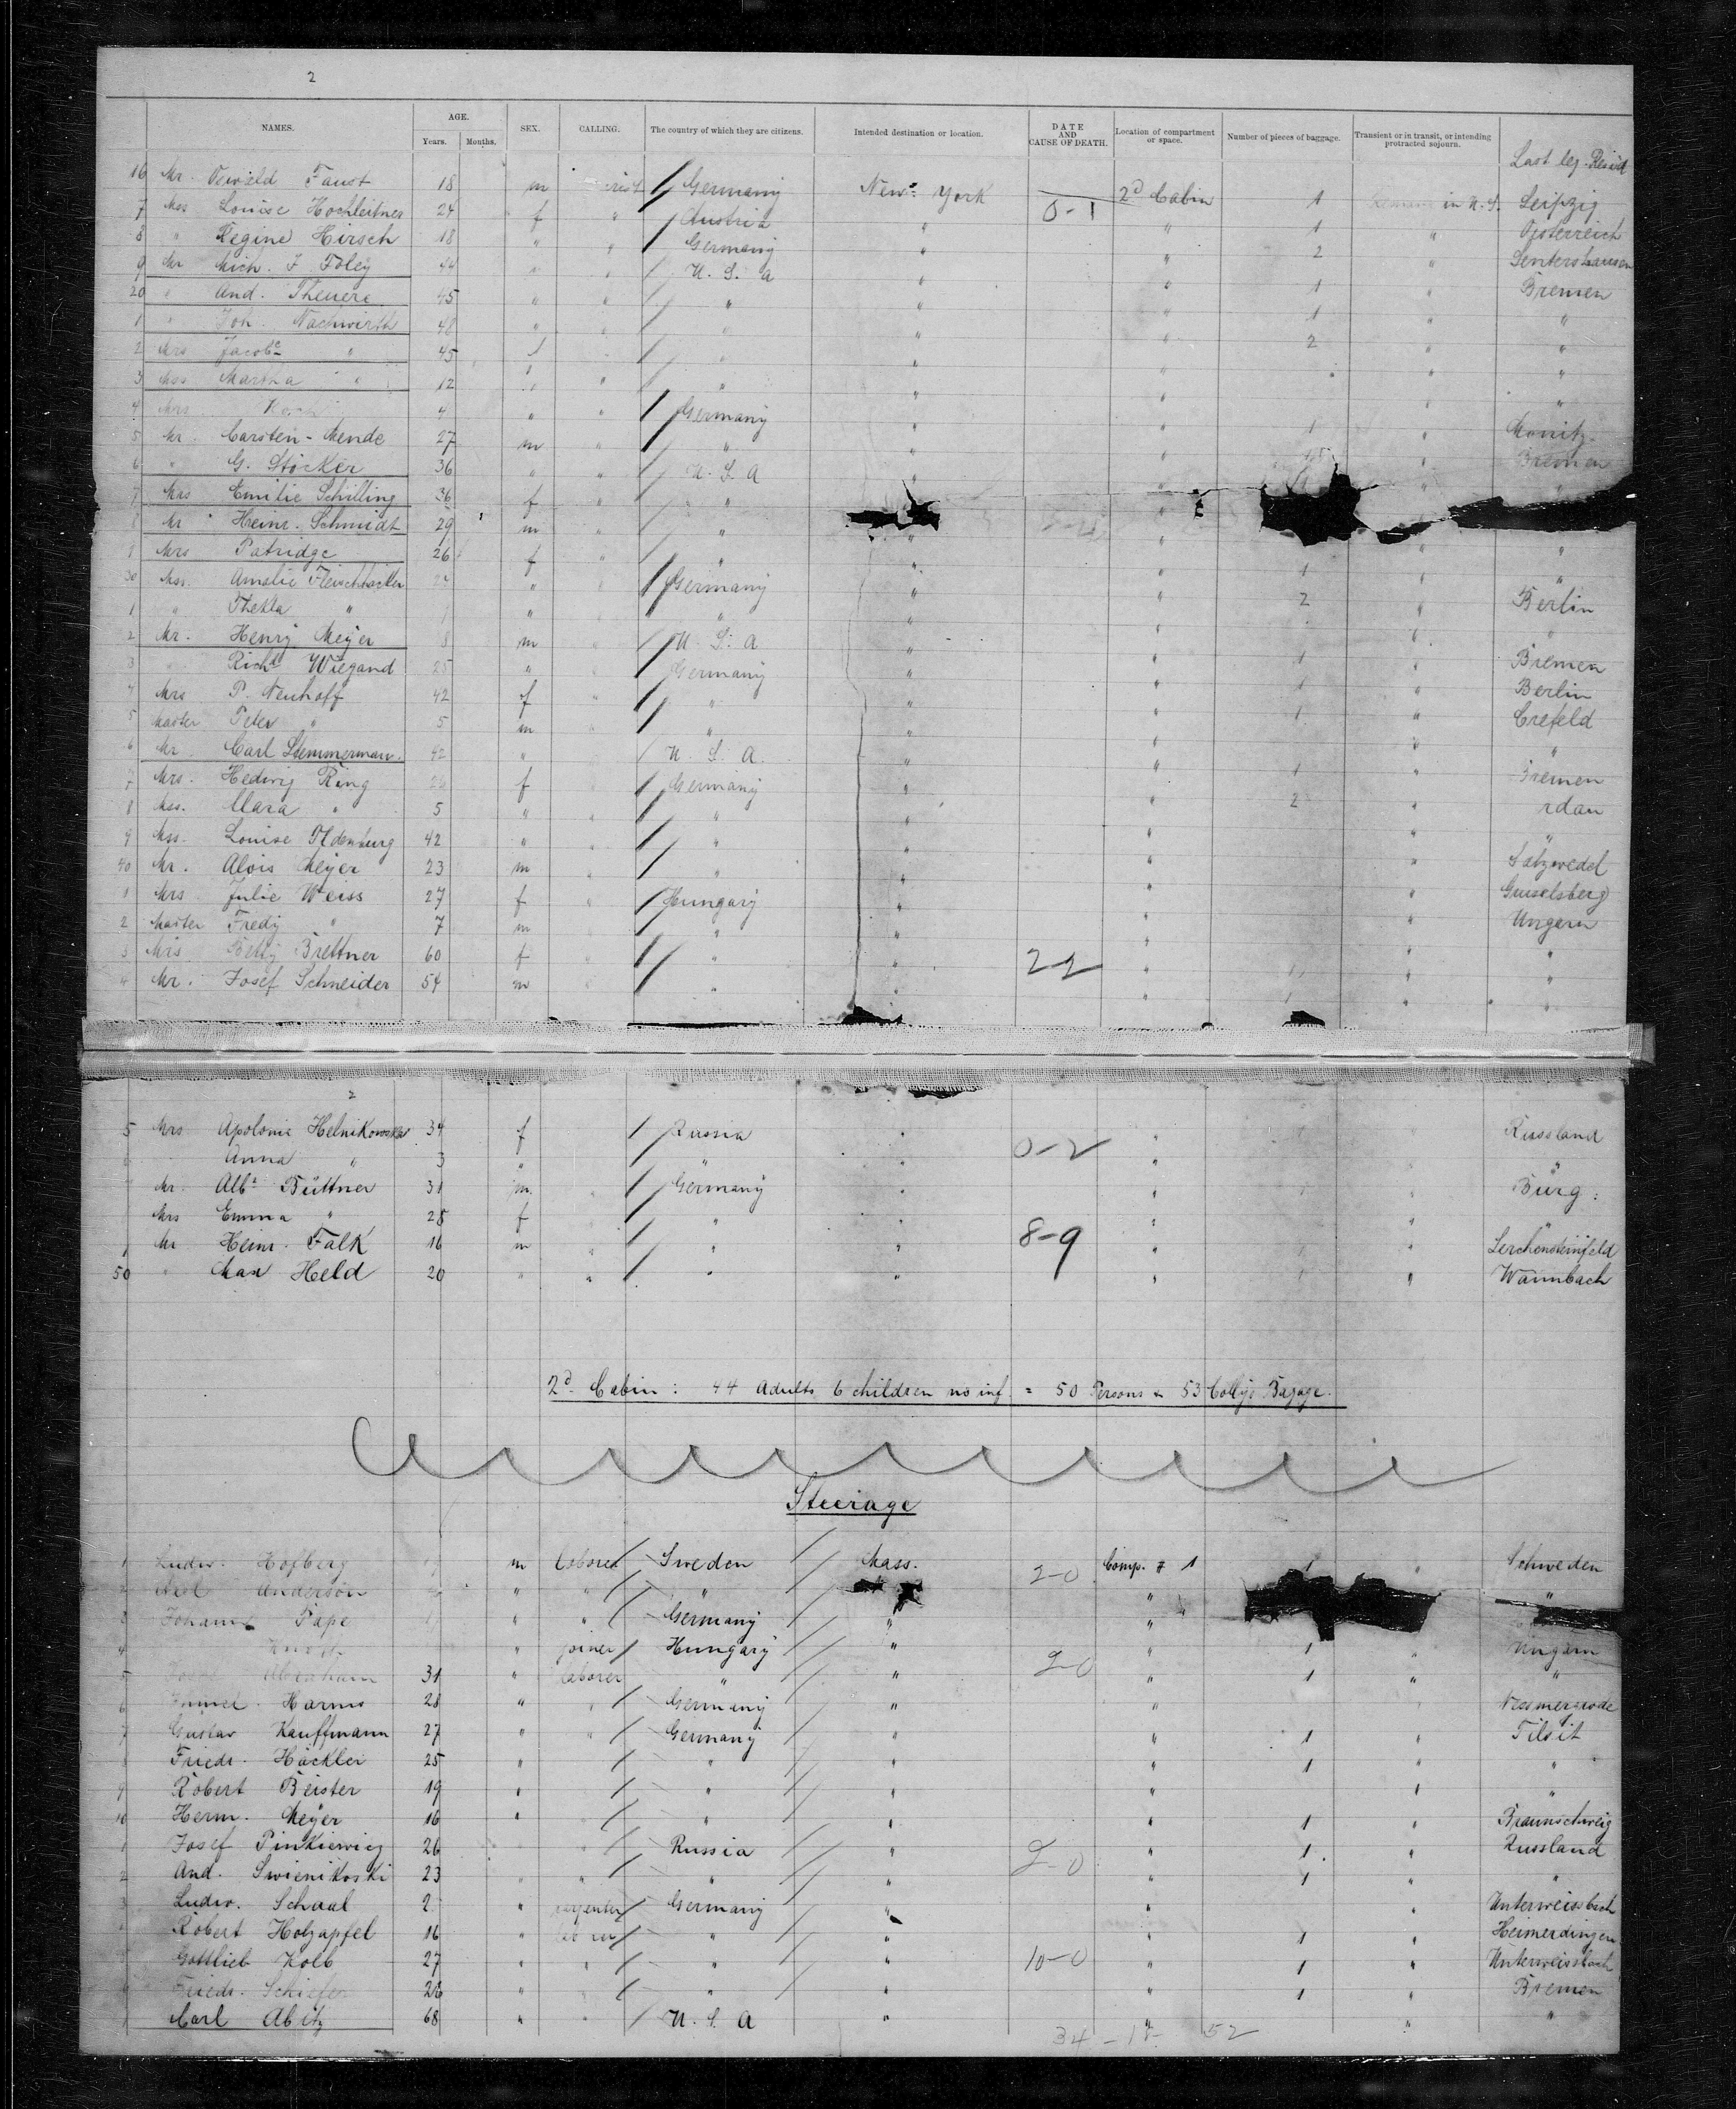 2
NAMES. AGE. Years. Months. SEX. CALLING. The country of which they are citizens. Intended destination or location. DATE AND CAUSE OF DEATH. Location of compartment or space. Number of pieces of baggage. Transient or in transit, or intending protracted sojourn. Last leg.
16 Mr. Faust 18 m Germany New-York 2d Cabin 1 in U.S. Leipzig
7 Mss Louise Hochleitner 24 f " Austria " 0-1 " 1 " Österreich
8 " Regine Hirsch 18 " " Germany " " 2 "
9 Mr Mich. J Foley 44 " " U. S. a " " 1 " Bremen
20 " And. Theuere 45 " " " " " 1 " "
1 " Joh. Nachwirth 48 " " " " " 2 " "
2 Mrs Jacobe " 45 f " " " " "
3 Mss Martha " 12 " " " " " " "
4 Mrs 4 " " Germany " " 1 "
5 Mr. Carsten-Mende 27 m " " " " "
6 " G. Stöcker 36 " " U. S. A " " " Bremen
7 Mrs Emilie Schilling 36 f " " "
8 Mr Heinr. Schmidt 29 m " " " "
9 Mrs Patridge 26 f " " " " 1 " "
30 Mss. Amalie " " Germany " " 2 " Berlin
1 " Thekla " " " " " " "
2 Mr. Henry Meyer 8 m " U. S. A " " 1 " Bremen
3 " Richd Wiegand 25 " " Germany " " 1 " Berlin
4 Mrs P. Neuhoff 42 f " " " " 1 " Crefeld
5 Master Peter " 5 m " " " " " "
6 Mr. Carl Stemmerman. 42 " U. S. A. " " 1 " Bremen
7 Mrs. Hedwig Ring f Germany " " 2 "
8 Mss. Clara " 5 " " " " " " "
9 Mss. Louise Oldenburg 42 " " " " " " Salzwedel
40 Mr. Alois Meyer 23 m " " " " "
1 Mrs Julie Weiss 27 f " Hungary " " " Ungarn
2 Master Fredy " 7 m " " " " "
3 Mrs Betty Brettner 60 f " " " 22 " 1 " "
4 Mr. Josef Schneider 54 m " " " " 1 " "
2
5 Mrs Apolonia Helnikowska 34 f Russia " 0-2 " 1 Russland
6 Anna " 3 " " " " "
Mr. Albt Büttner 31 m. " Germany " " 1 " Burg:
Mrs Emma " 28 f " " " " "
9 Mr Heinr. Falk 16 m " " " 8-9 " 1 " Lerchensteinfeld
50 " Max Held 20 " " " " " 1 " Wambach
2d. Cabin: 44 Adults 6 children no inf. = 50 Persons & 53 Collije Bagage.
Steerage
1 Ludw. Hofberg m laborer Sweden Mass. 2-0 Comp. # 1 1 " Schweden
2 Axel Anderson " " " " " "
3 Johann Pape " " Germany " "
4 " joiner Hungary " " 1 " Ungarn
5 Abraham 31 " laborer " " 2-0 " 1 " "
6 Harms 28 " " Germany " "
7 Gustav Kauffmann 27 " " Germany " " 1 " Tilsit
8 Friedr. Häckler 25 " " " " 1 " "
9 Robert Beister 19 " " " " " "
10 Herm. Meyer 16 " " " " 1 " Braunschweig
1 Josef Pinkiewicz 26 " Russia " 2-0 " 1 " Russland
2 And. Swienikoski 23 " " " " " 1 " "
3 Ludw. Schaal 2 " carpenter Germany " " " Unterweissbach
Robert Holzapfel 16 " laborer " " " 1 " Heimerdingen
Gottlieb Kolb 27 " " " " 10-0 " 1 " Unterweissbach
Friedr. Schiefer 26 " " " " " 1 " Bremen
Carl Abitz 68 " " U. S. A " " " "
34-18- 52